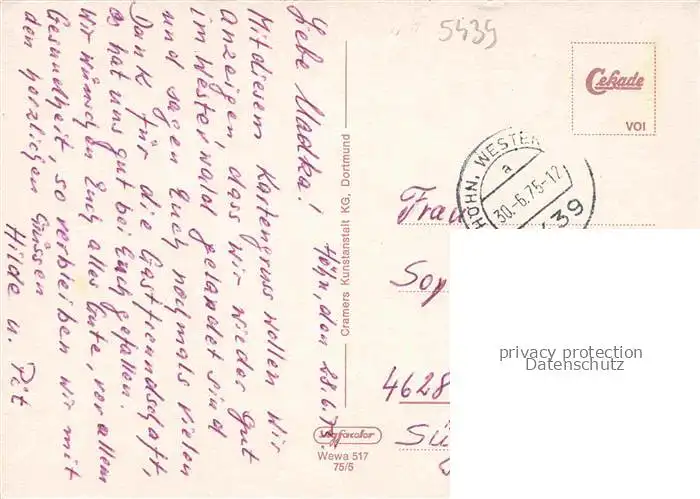 5439
Cekade
VOI
HÖHN, WESTER
a
30.-6.75-12
439
Liebe Madka!
Höhn, den 28.6.75
Mit diesem Kartengruss wollen wir
anzeigen, dass wir wieder gut
im Westerwald gelandet sind
und sagen Euch nochmals vielen
Dank für die Gastfreundschaft,
es hat uns gut bei Euch gefallen.
Wir wünschen Euch alles Gute, vor allem
Gesundheit, so verbleiben wir mit
den herzlichen Grüssen
Hilde u. Pit
Cramers Kunstanstalt KG, Dortmund
Frau
Sop
4628
Sü
Wewa 517
75/5
privacy protection
Datenschutz